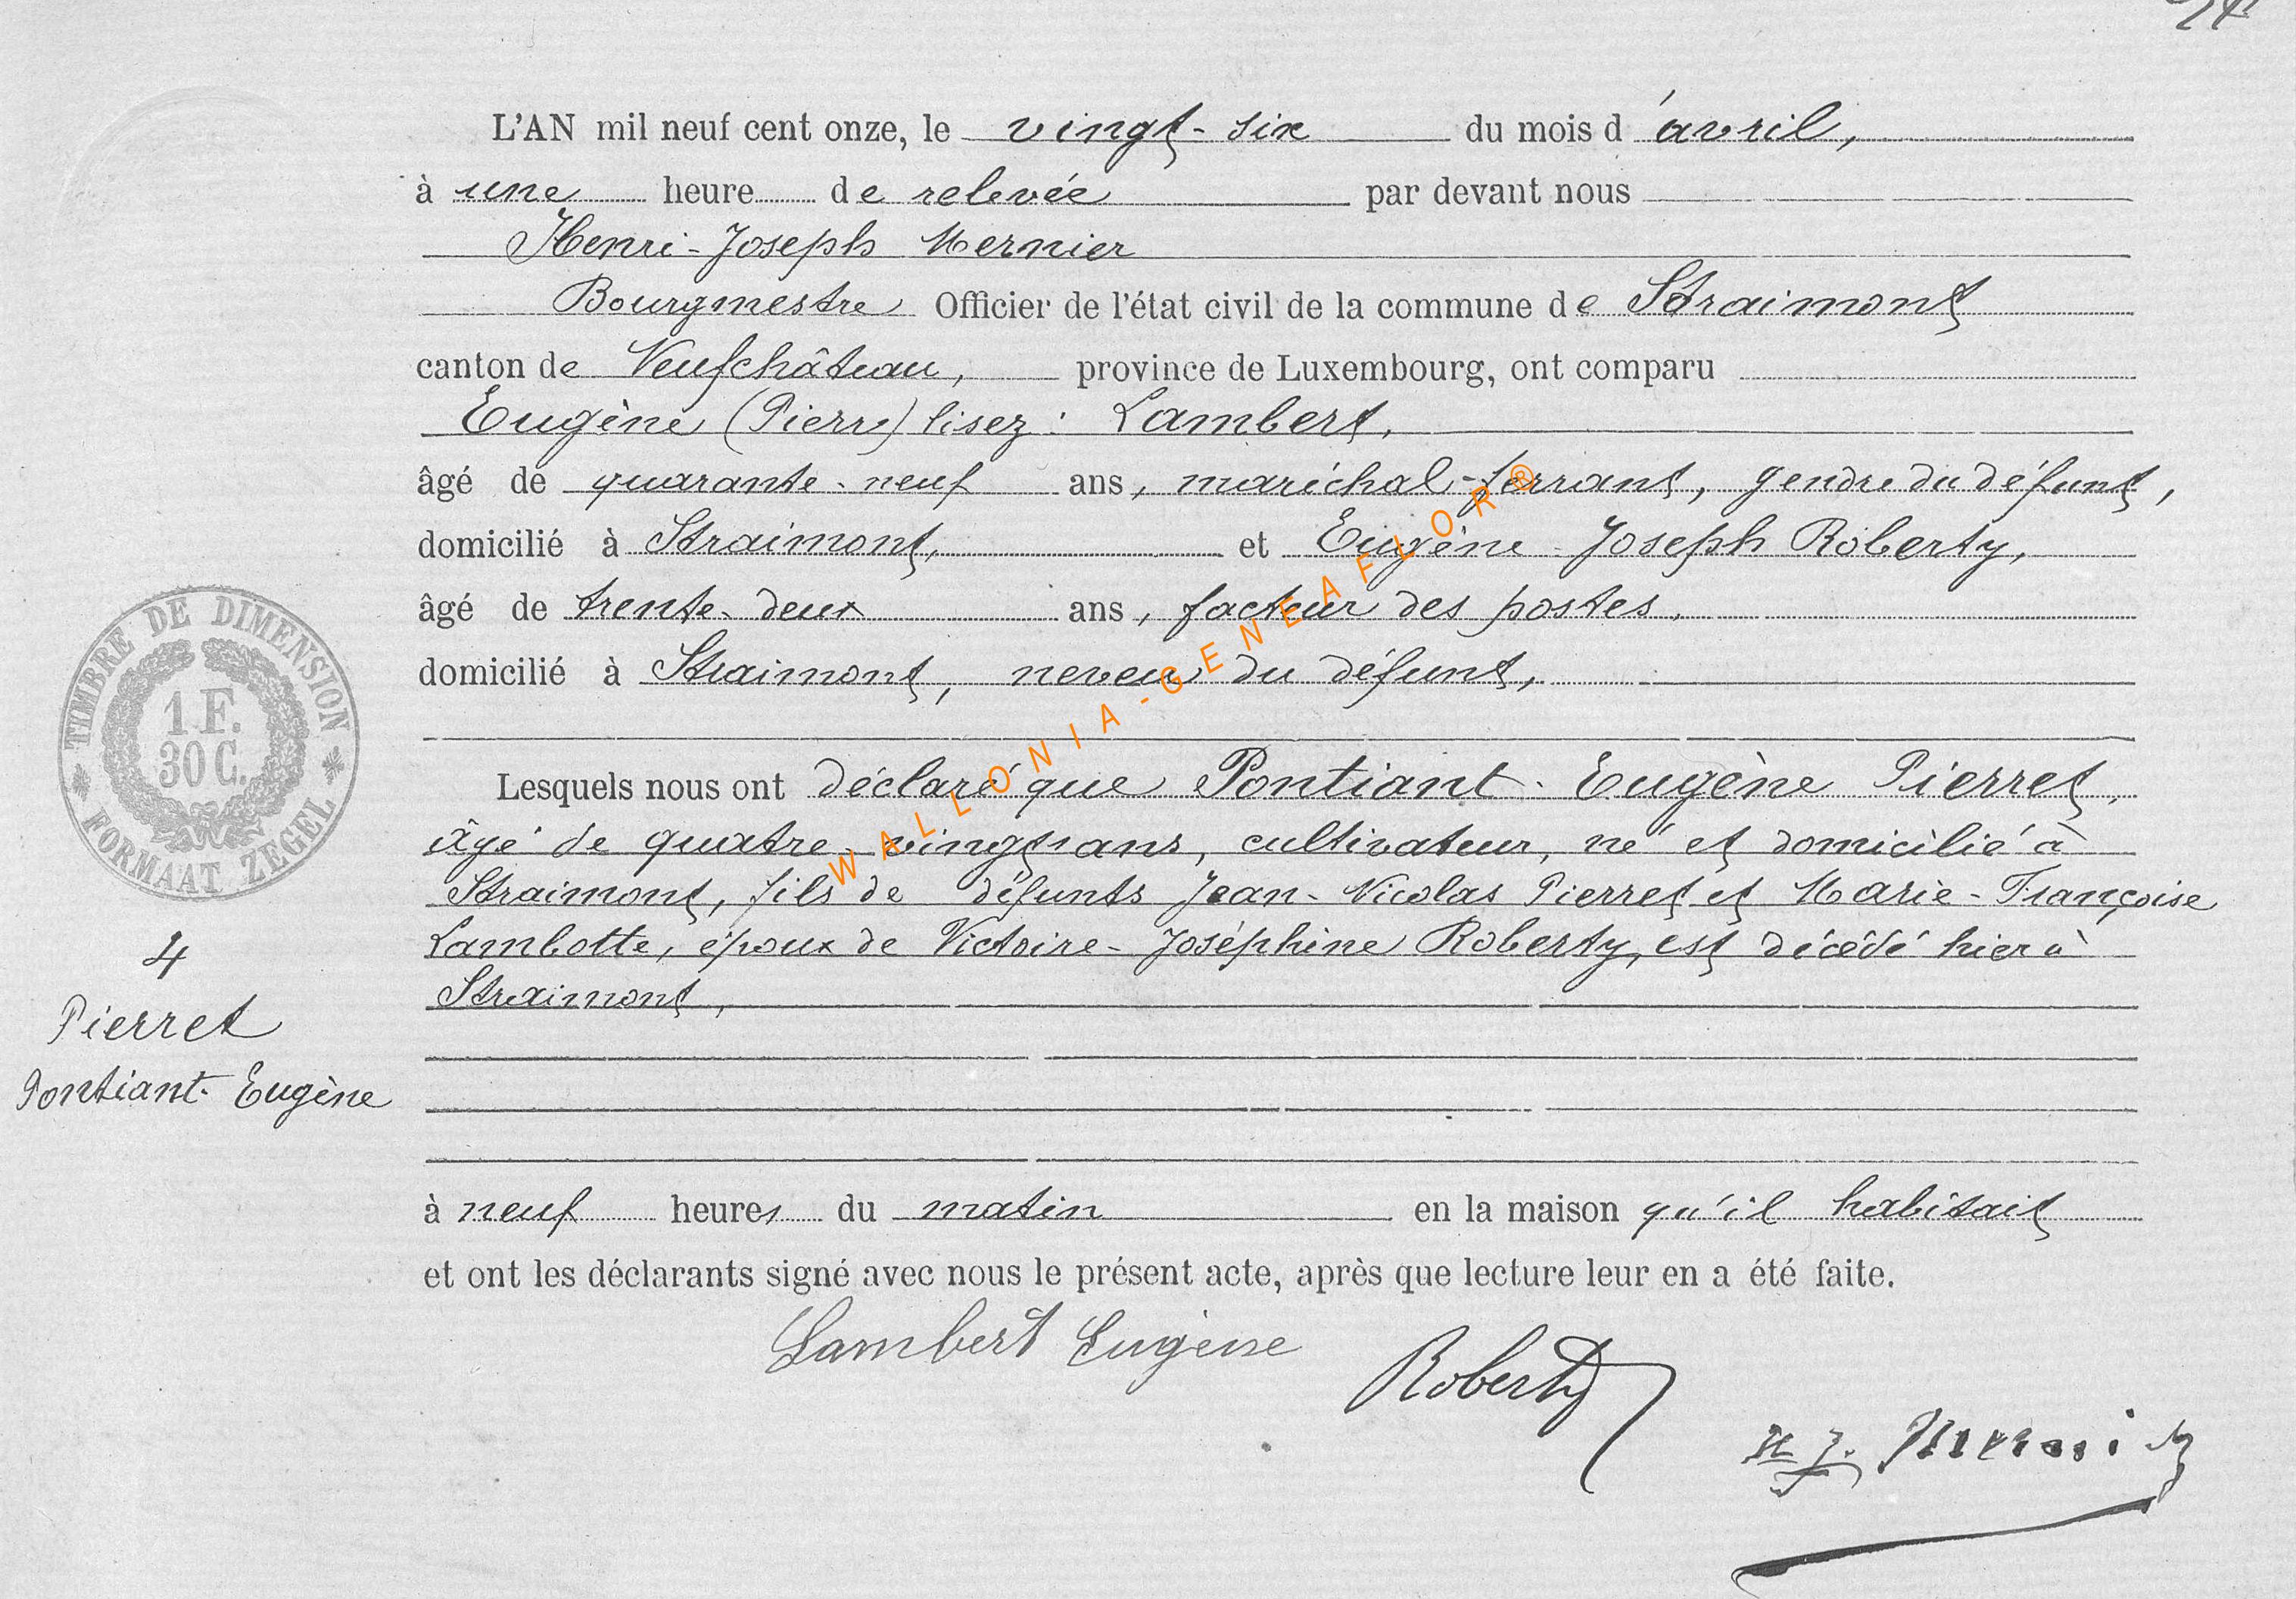 L'AN mil neuf cent onze, le vingt-six du mois d'avril,
à une heure de relevée par devant nous
Henri-Joseph Mernier
Bourgmestre Officier de l'état civil de la commune de Straimont
canton de Neufchâteau, province de Luxembourg, ont comparu
Eugène (Pierre) lisez : Lambert,
âgé de quarante-neuf ans, maréchal-ferrant, gendre du défunt,
domicilié à Straimont, et Eugène-Joseph Roberty,
âgé de trente-deux ans, facteur des postes,
domicilié à Straimont, neveu du défunt,
Lesquels nous ont déclaré que Pontiant-Eugène Pierret,
âgé de quatre-vingts ans, cultivateur, né et domicilié à
Straimont, fils de défunts Jean-Nicolas Pierret et Marie-Françoise
Lambotte, époux de Victoire-Joséphine Roberty, est décédé hier à
Straimont,
à neuf heures du matin en la maison qu'il habitait
et ont les déclarants signé avec nous le présent acte, après que lecture leur en a été faite.
Lambert Eugène
Roberty
H J. Mernier
TIMBRE DE DIMENSION
1 F.
30 C.
FORMAAT ZEGEL
4
Pierret
Pontiant-Eugène
WALLONIA-GENEAFLOR®